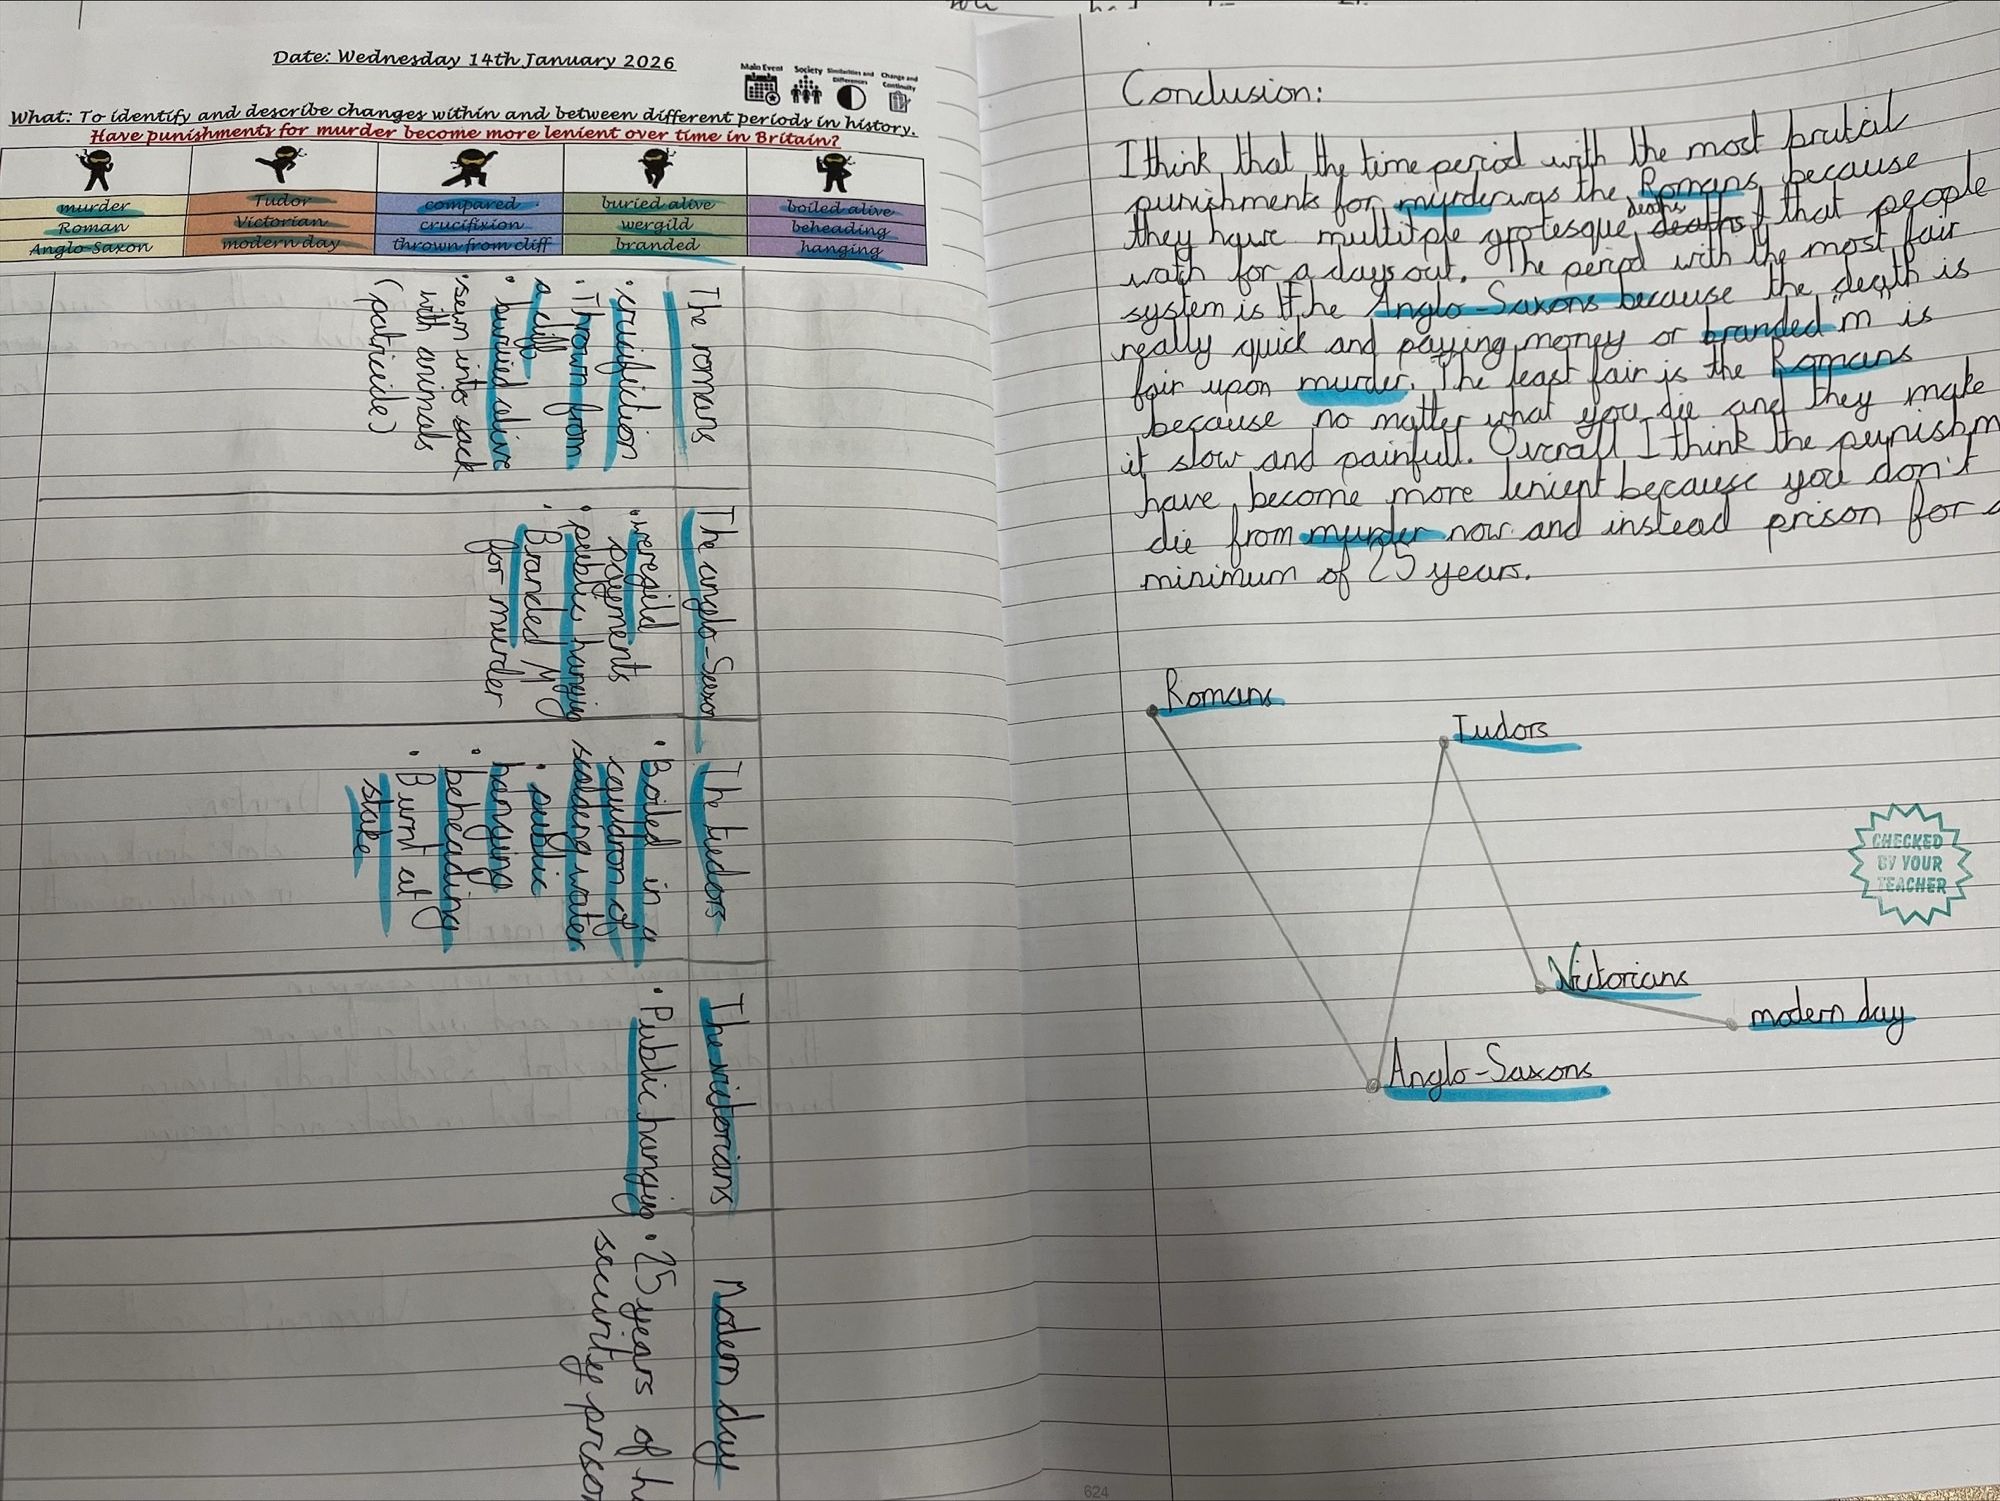 Date: Wednesday 14th January 2026
Main Event
Society
Similarities and Differences
Change and Continuity
What: To identify and describe changes within and between different periods in history.
Have punishments for murder become more lenient over time in Britain?
murder Tudor compared buried alive boiled alive
Roman Victorian crucifixion wergild beheading
Anglo-Saxon modern day thrown from cliff branded hanging
The romans
• crucifiction
• Thrown from
a cliff
• buried alive
• sewn into sack
with animals
(patricide)
The anglo-Saxo
• weregild
payments
• public hanging
• Branded M
for murder
The tudors
• Boiled in a
cauldron of
scalding water
• public
hanging
• beheading
• Burnt at
stake
The victorians
• Public hanging
Modern day
• 25 years of h
security prison
Conclusion:
I think that the time period with the most brutal
punishments for murder was the Romans, because
they have multitple grotesque deaths that people
wath for a days out. The period with the most fair
system is the Anglo-Saxons because the "death" is
really quick and paying money or branded m is
fair upon murder. The least fair is the Romans
because no matter what you die and they make
it slow and painfull. Overall I think the punishm
have become more lenient because you don't
die from murder now and instead prison for a
minimum of 25 years.
Romans
Tudors
Victorians
modern day
Anglo-Saxons
CHECKED
BY YOUR
TEACHER
624